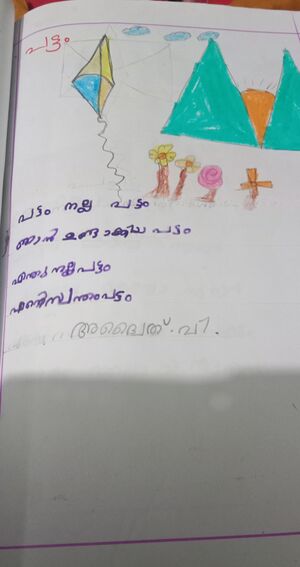 പട്ടം
പട്ടം നല്ല പട്ടം
ഞാൻ ഉണ്ടാക്കിയ പട്ടം
എന്തു നല്ല പട്ടം
എന്റെ സ്വന്തം പട്ടം
അദ്വൈത്. വി.